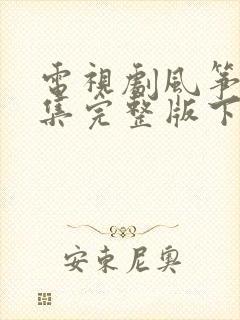 電視劇風箏
集完整版下
安東尼奧